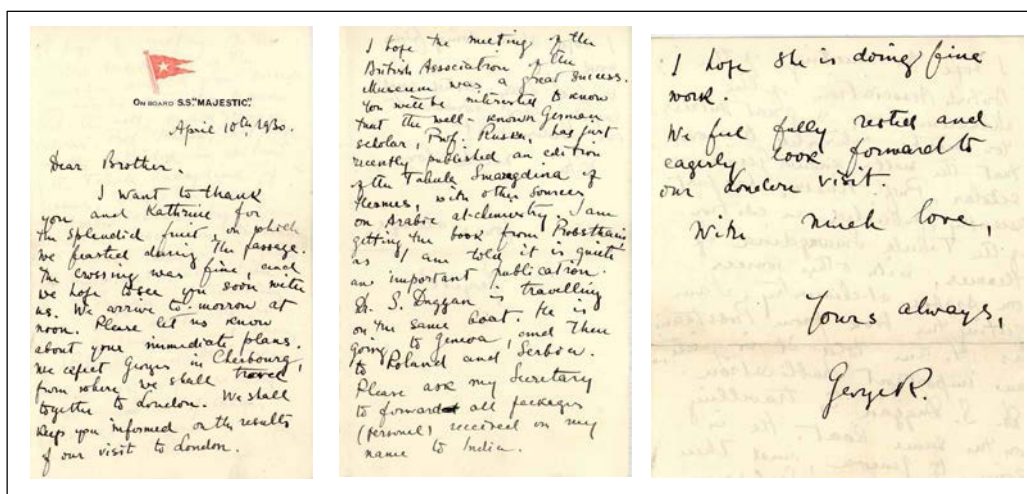 ON BOARD S.S. "MAJESTIC".
April 10th, 1930.
Dear Brother.
I want to thank
you and Kathrine for
the splendid fruit, on which
we feasted during the passage.
The crossing was fine, and
we hope to see you soon with
us. We arrive to-morrow at
noon. Please let us know
about your immediate plans.
We expect Georges in Cherbourg,
from where we shall travel
together to London. We shall
keep you informed on the results
of our visit to London.
I hope the meeting of the
British Association of the
Museum was a great success.
You will be interested to know
that the well-known German
scholar, Prof. Ruska, has just
recently published an edition
of the Tabula Smaragdina of
Hermes, with other sources
on Arabic alchemistry. I am
getting the book from Probsthain
as I am told it is quite
an important publication.
Dr. S. Duggan is travelling
on the same boat. He is
going to Geneva, and then
to Poland and Serbia.
Please ask my Secretary
to forward all packages
(personel) received on my
name to India.
I hope she is doing fine
work.
We feel fully rested and
eagerly look forward to
our London visit.
With much love,
Yours always,
George R.